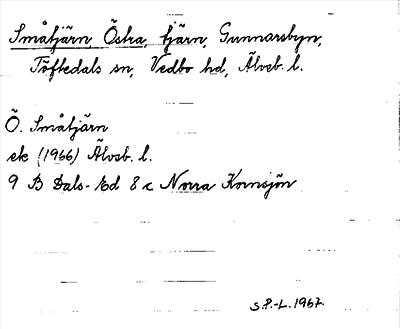 Småtjärn, Östra, tjärn, Gunnarsbyn,
Töftedals sn, Vedbo hd, Älvsb. l.
Ö. Småtjärn
ek (1966) Älvsb. l.
9 B Dals-Ed 8 c Norra Kornsjön
S.P.-L. 1967.